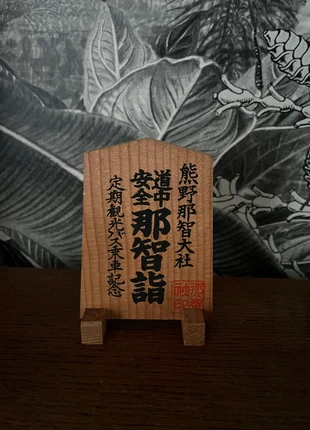 熊野那智大社
道中
安全
那智詣
定期観光バス乗車記念